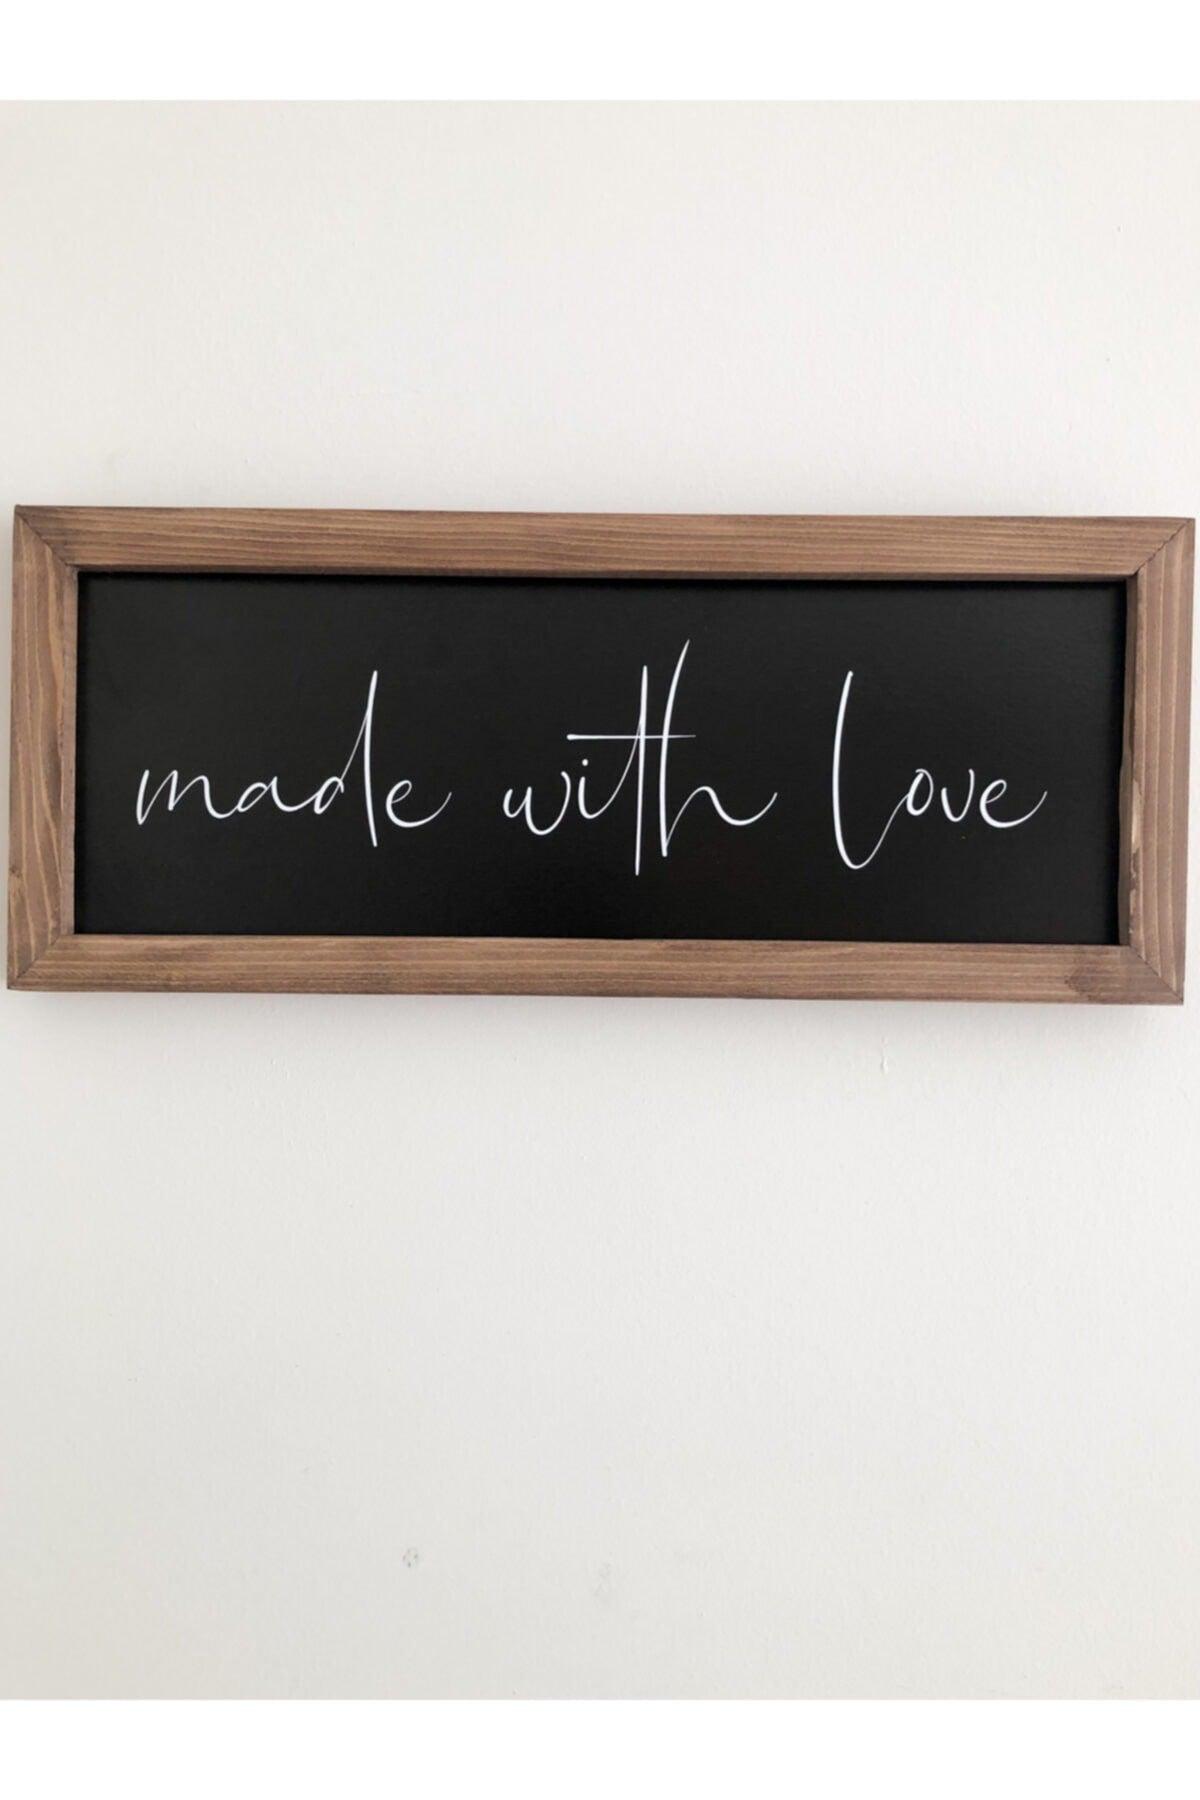 made with love